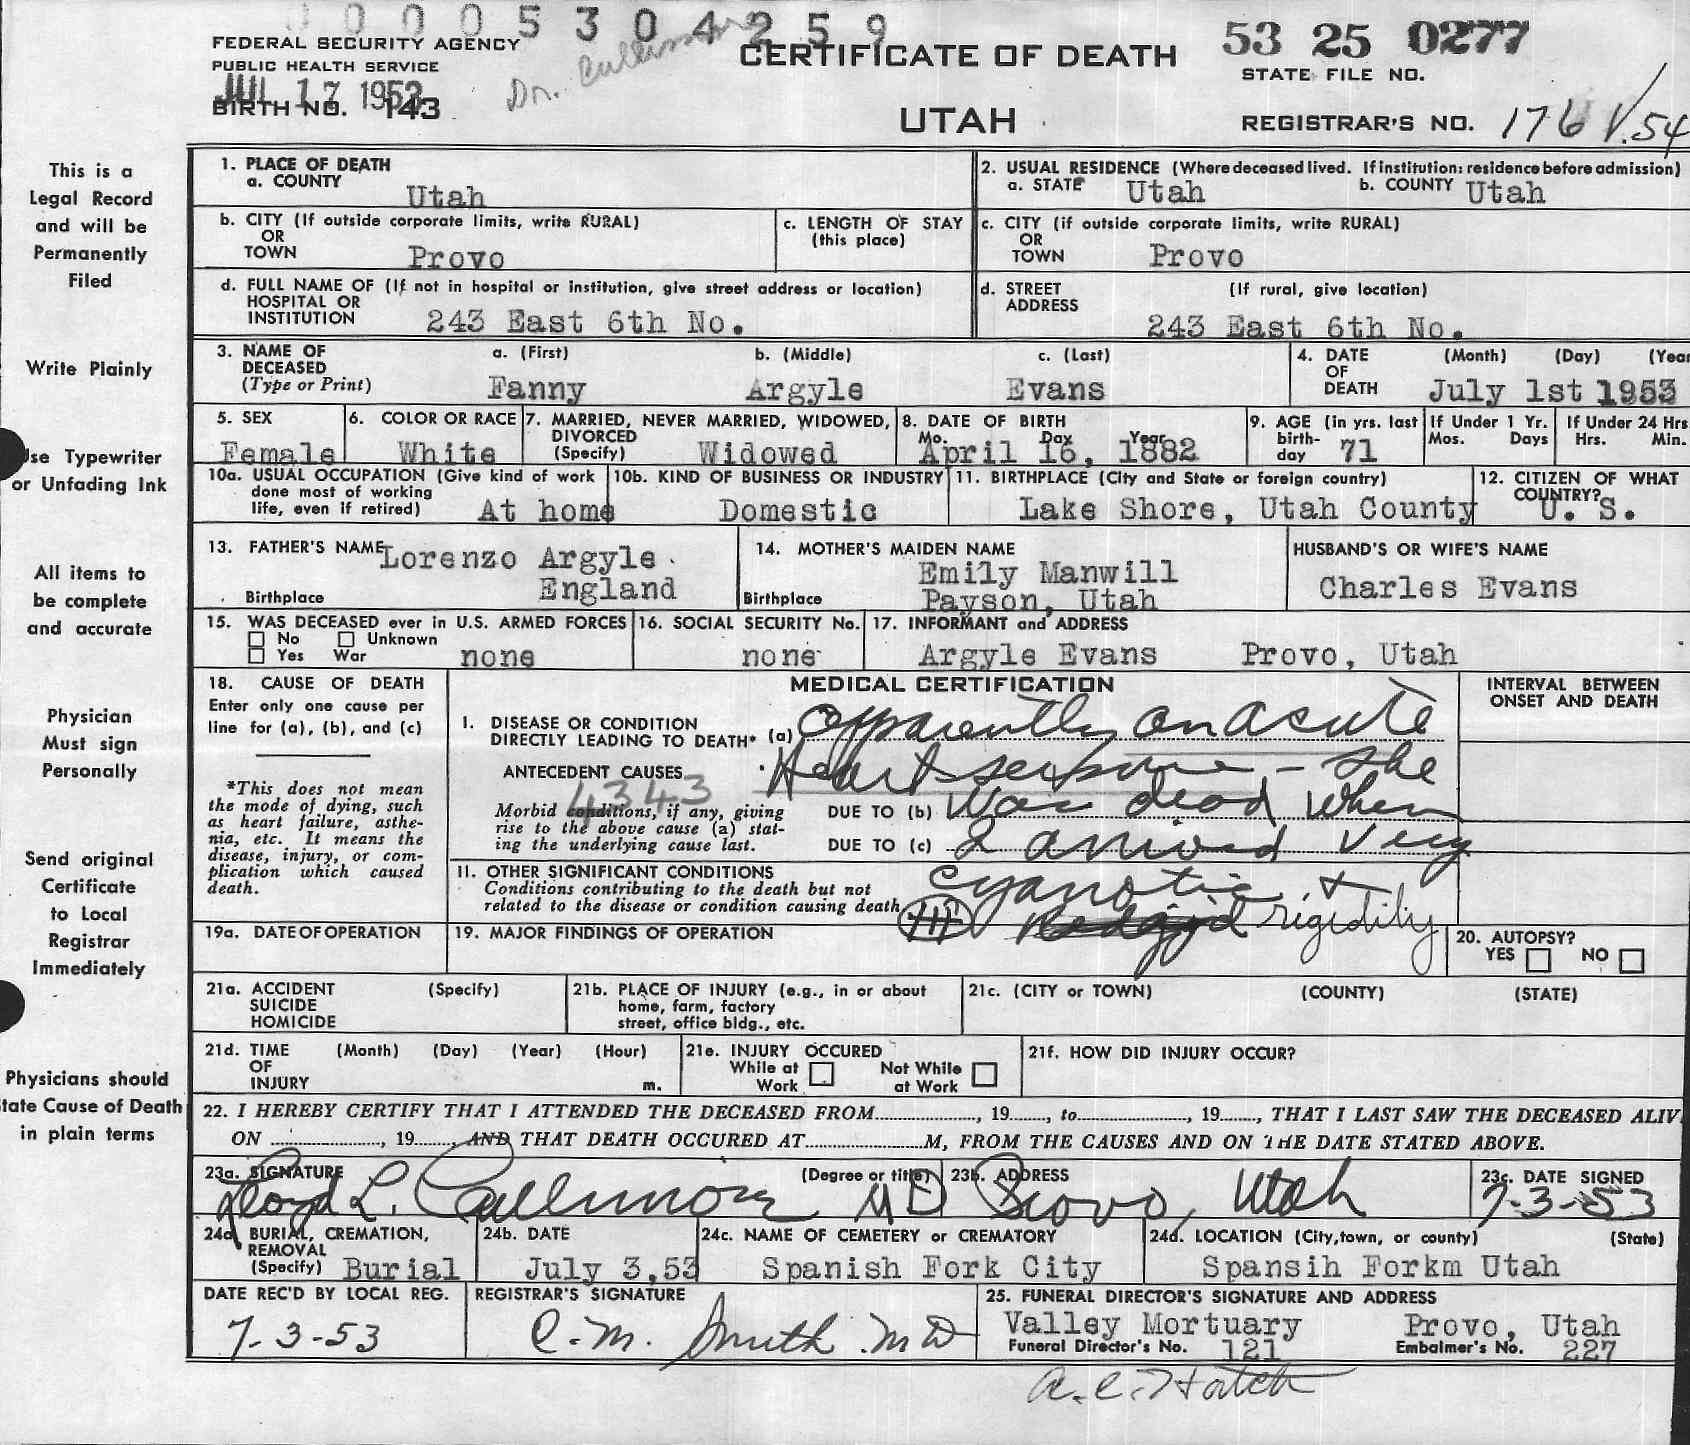 0 0 0 5 3 0 4 2 5 9
FEDERAL SECURITY AGENCY
PUBLIC HEALTH SERVICE
JUL 17 1953
BIRTH NO. 143
Dr. Cullimore
CERTIFICATE OF DEATH
UTAH
53 25 0277
STATE FILE NO.
REGISTRAR'S NO. 176 V.54
This is a
Legal Record
and will be
Permanently
Filed
Write Plainly
Use Typewriter
or Unfading Ink
All items to
be complete
and accurate
Physician
Must sign
Personally
Send original
Certificate
to Local
Registrar
Immediately
Physicians should
tate Cause of Death
in plain terms
1. PLACE OF DEATH
a. COUNTY
Utah
2. USUAL RESIDENCE (Where deceased lived. If institution: residence before admission)
a. STATE Utah b. COUNTY Utah
b. CITY (If outside corporate limits, write RURAL)
OR
TOWN Provo
c. LENGTH OF STAY
(this place)
c. CITY (if outside corporate limits, write RURAL)
OR
TOWN Provo
d. FULL NAME OF (If not in hospital or institution, give street address or location)
HOSPITAL OR
INSTITUTION 243 East 6th No.
d. STREET (If rural, give location)
ADDRESS
243 East 6th No.
3. NAME OF a. (First) b. (Middle) c. (Last)
DECEASED
(Type or Print) Fanny Argyle Evans
4. DATE (Month) (Day) (Year
OF
DEATH July 1st 1953
5. SEX
Female
6. COLOR OR RACE
White
7. MARRIED, NEVER MARRIED, WIDOWED,
DIVORCED
(Specify) Widowed
8. DATE OF BIRTH
Mo. Day Year
April 16, 1882
9. AGE (in yrs. last
birth-
day 71
If Under 1 Yr.
Mos. Days
If Under 24 Hrs
Hrs. Min.
10a. USUAL OCCUPATION (Give kind of work
done most of working
life, even if retired) At home
10b. KIND OF BUSINESS OR INDUSTRY
Domestic
11. BIRTHPLACE (City and State or foreign country)
Lake Shore, Utah County
12. CITIZEN OF WHAT
COUNTRY?
U. S.
13. FATHER'S NAME Lorenzo Argyle
Birthplace England
14. MOTHER'S MAIDEN NAME
Emily Manwill
Birthplace Payson, Utah
HUSBAND'S OR WIFE'S NAME
Charles Evans
15. WAS DECEASED ever in U.S. ARMED FORCES
No Unknown
Yes War none
16. SOCIAL SECURITY No.
none
17. INFORMANT and ADDRESS
Argyle Evans Provo, Utah
18. CAUSE OF DEATH
Enter only one cause per
line for (a), (b), and (c)
*This does not mean
the mode of dying, such
as heart failure, asthe-
nia, etc. It means the
disease, injury, or com-
plication which caused
death.
MEDICAL CERTIFICATION
INTERVAL BETWEEN
ONSET AND DEATH
I. DISEASE OR CONDITION
DIRECTLY LEADING TO DEATH* (a) Apparently an acute
Heart seizure - she
ANTECEDENT CAUSES
4343
Morbid conditions, if any, giving
rise to the above cause (a) stat-
ing the underlying cause last.
DUE TO (b) was dead when
DUE TO (c) I arrived very
II. OTHER SIGNIFICANT CONDITIONS
Conditions contributing to the death but not
related to the disease or condition causing death
cyanotic +
rigidity
19a. DATE OF OPERATION
19. MAJOR FINDINGS OF OPERATION
20. AUTOPSY?
YES NO
21a. ACCIDENT (Specify)
SUICIDE
HOMICIDE
21b. PLACE OF INJURY (e.g., in or about
home, farm, factory
street, office bldg., etc.
21c. (CITY or TOWN) (COUNTY) (STATE)
21d. TIME (Month) (Day) (Year) (Hour)
OF
INJURY m.
21e. INJURY OCCURED
While at Not While
Work at Work
21f. HOW DID INJURY OCCUR?
22. I HEREBY CERTIFY THAT I ATTENDED THE DECEASED FROM........, 19...., to........, 19...., THAT I LAST SAW THE DECEASED ALIV
ON ........, 19...., AND THAT DEATH OCCURED AT........M, FROM THE CAUSES AND ON THE DATE STATED ABOVE.
23a. SIGNATURE (Degree or title)
Lloyd L. Cullimore MD
23b. ADDRESS
Provo, Utah
23c. DATE SIGNED
7-3-53
24a. BURIAL, CREMATION,
REMOVAL
(Specify) Burial
24b. DATE
July 3,53
24c. NAME OF CEMETERY or CREMATORY
Spanish Fork City
24d. LOCATION (City, town, or county) (State)
Spansih Forkm Utah
DATE REC'D BY LOCAL REG.
7-3-53
REGISTRAR'S SIGNATURE
C. M. Smith MD
25. FUNERAL DIRECTOR'S SIGNATURE AND ADDRESS
Valley Mortuary Provo, Utah
Funeral Director's No. 121 Embalmer's No. 227
A. C. Hatch